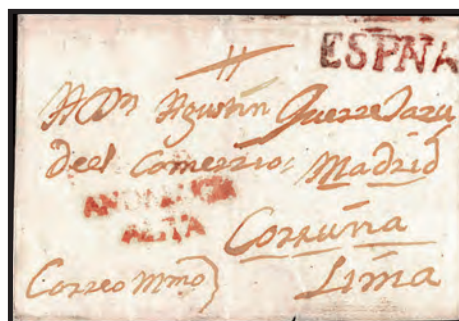 ESPÑA
A Dn Agustin Querejazu
deel Comerzio: Madrid
ANDALUCIA
ALTA
Corruña
Correo Mmo
Lima